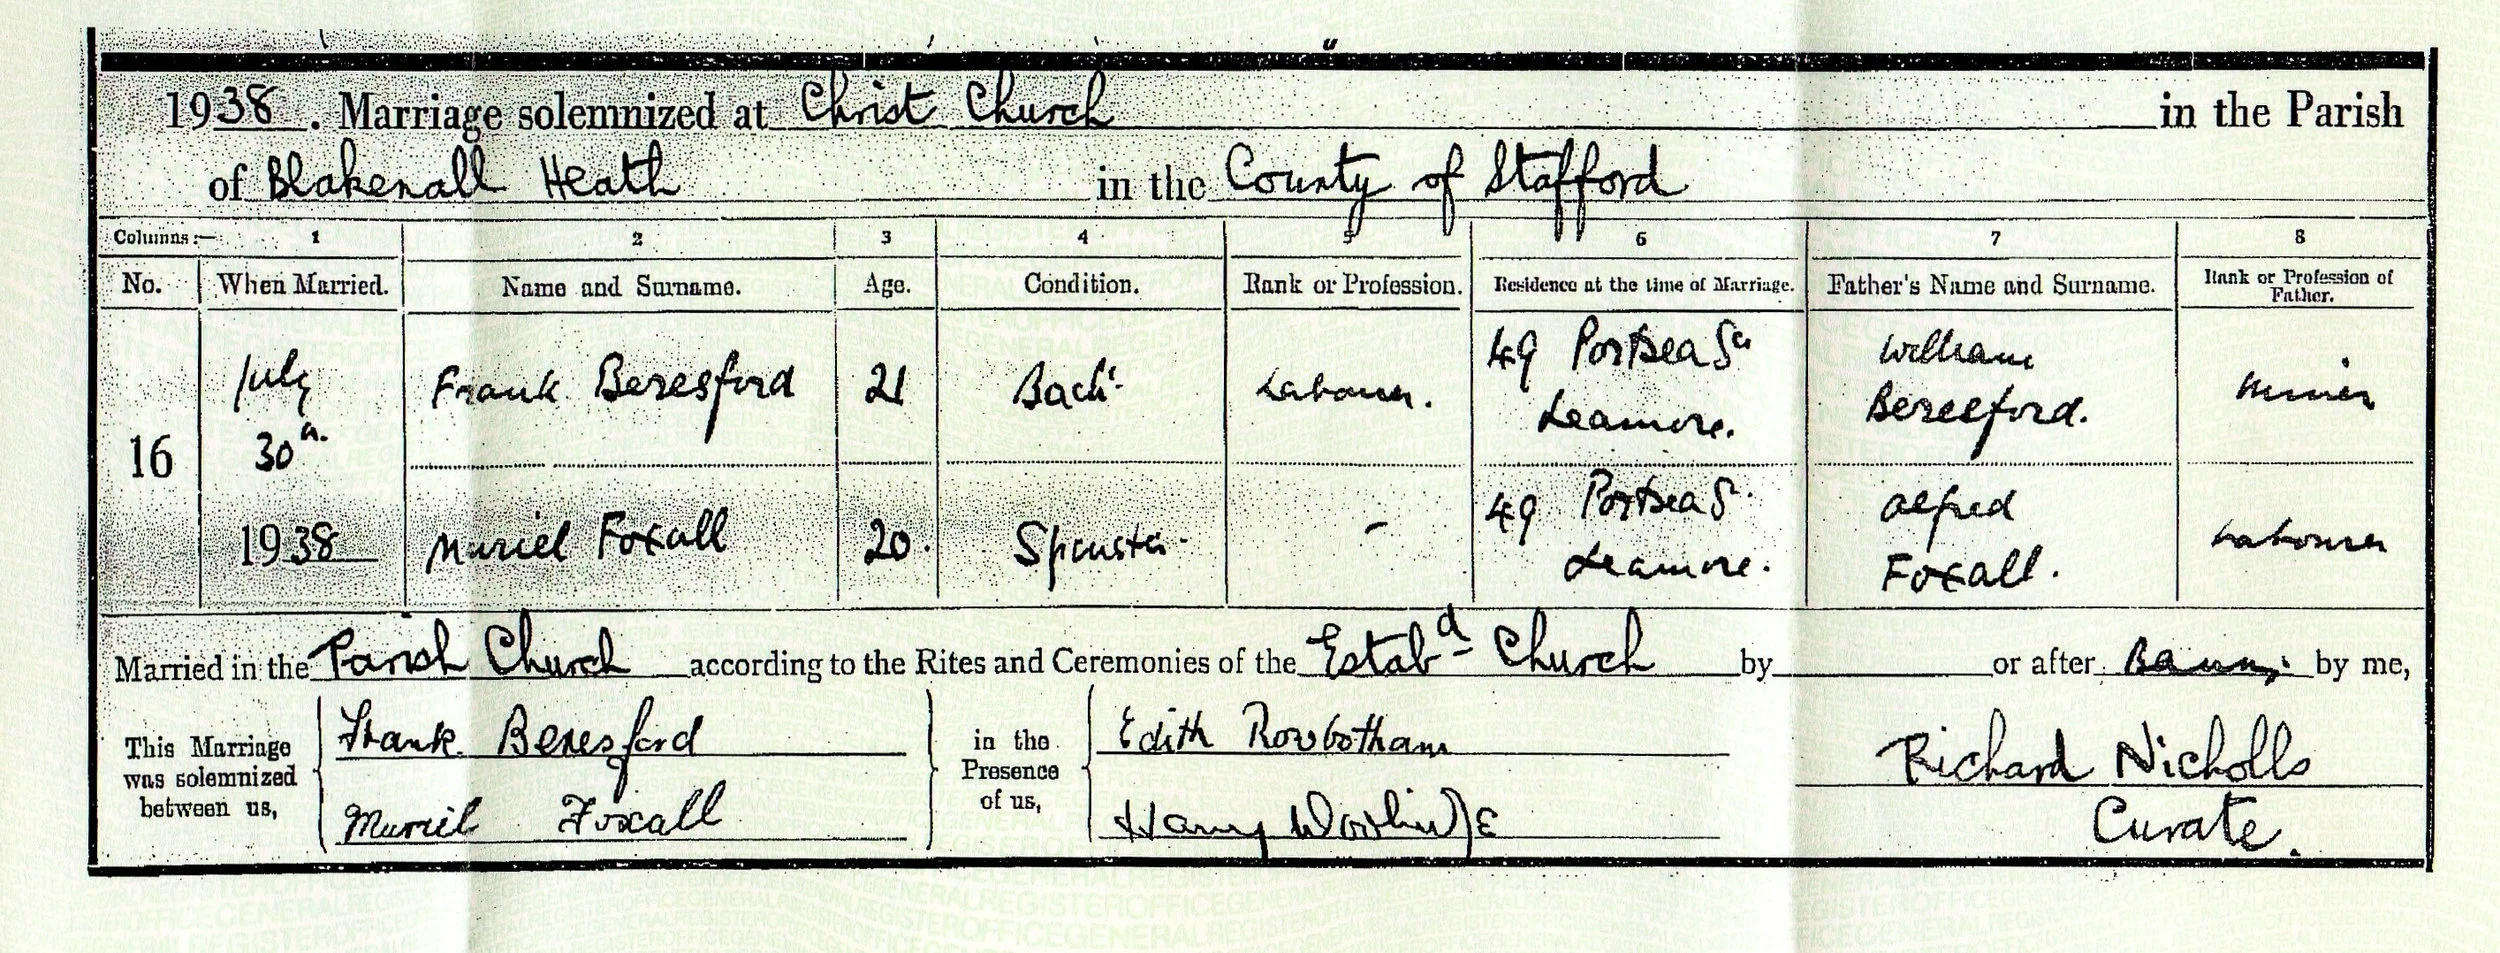 1938. Marriage solemnized at Christ Church in the Parish
of Blakenall Heath in the County of Stafford
Columns:— 1 2 3 4 5 6 7 8
No. When Married. Name and Surname. Age. Condition. Rank or Profession. Residence at the time of Marriage. Father's Name and Surname. Rank or Profession of Father.
16 July 30th 1938
Frank Beresford 21 Bachr. Labourer. 49 Portsea St Leamore. William Beresford. Miner
Muriel Foxall 20. Spinster - 49 Portsea St Leamore. Alfred Foxall. Labourer
Married in the Parish Church according to the Rites and Ceremonies of the Estabd Church by or after Banns by me,
This Marriage was solemnized between us,
Frank Beresford
Muriel Foxall
in the Presence of us,
Edith Rowbotham
Harry
Richard Nicholls
Curate.
GENERALREGISTEROFFICE